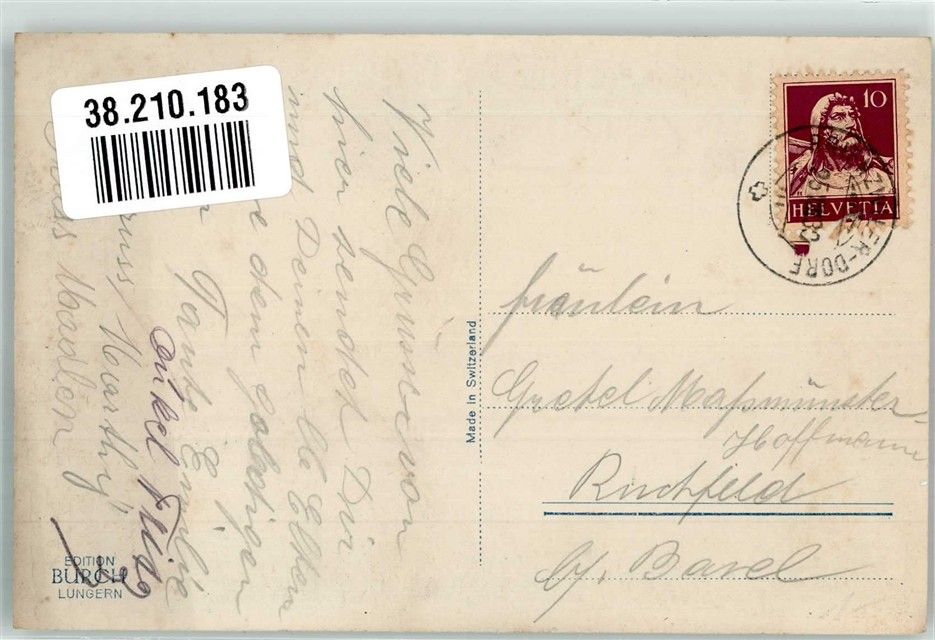 38.210.183
Viele Grüsse von
hier sendet Dir
und Deinen lb. Eltern
dem goldigen
Tante Emilie
Gruss Marthy
Madlen
Onkel
EDITION
BURCH
LUNGERN
Made in Switzerland
10
HELVETIA
DORF
Fräulein
Gretel Maßmünster
Hoffmann
Ruchfeld
b/. Basel